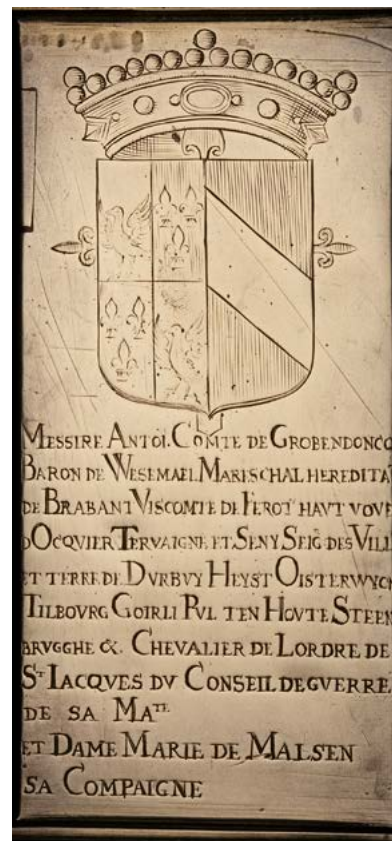 MESSIRE ANTOI. COMTE DE GROBENDONCQ
BARON DE WESEMAEL MARESCHAL HEREDITA
DE BRABANT VISCOMTE DE FEROT HAVT VOVE
DOCQVIER TERVAIGNE ET SENY SEIG DES VILL
ET TERRE DE DVRBVY HEYST OISTERWYCK
TILBOVRG GOIRLI PVL TEN HOVTE STEEN
BRVGGHE &. CHEVALIER DE LORDRE DE
ST IACQVES DV CONSEIL DE GVERRE
DE SA MATE
ET DAME MARIE DE MALSEN
SA COMPAIGNE